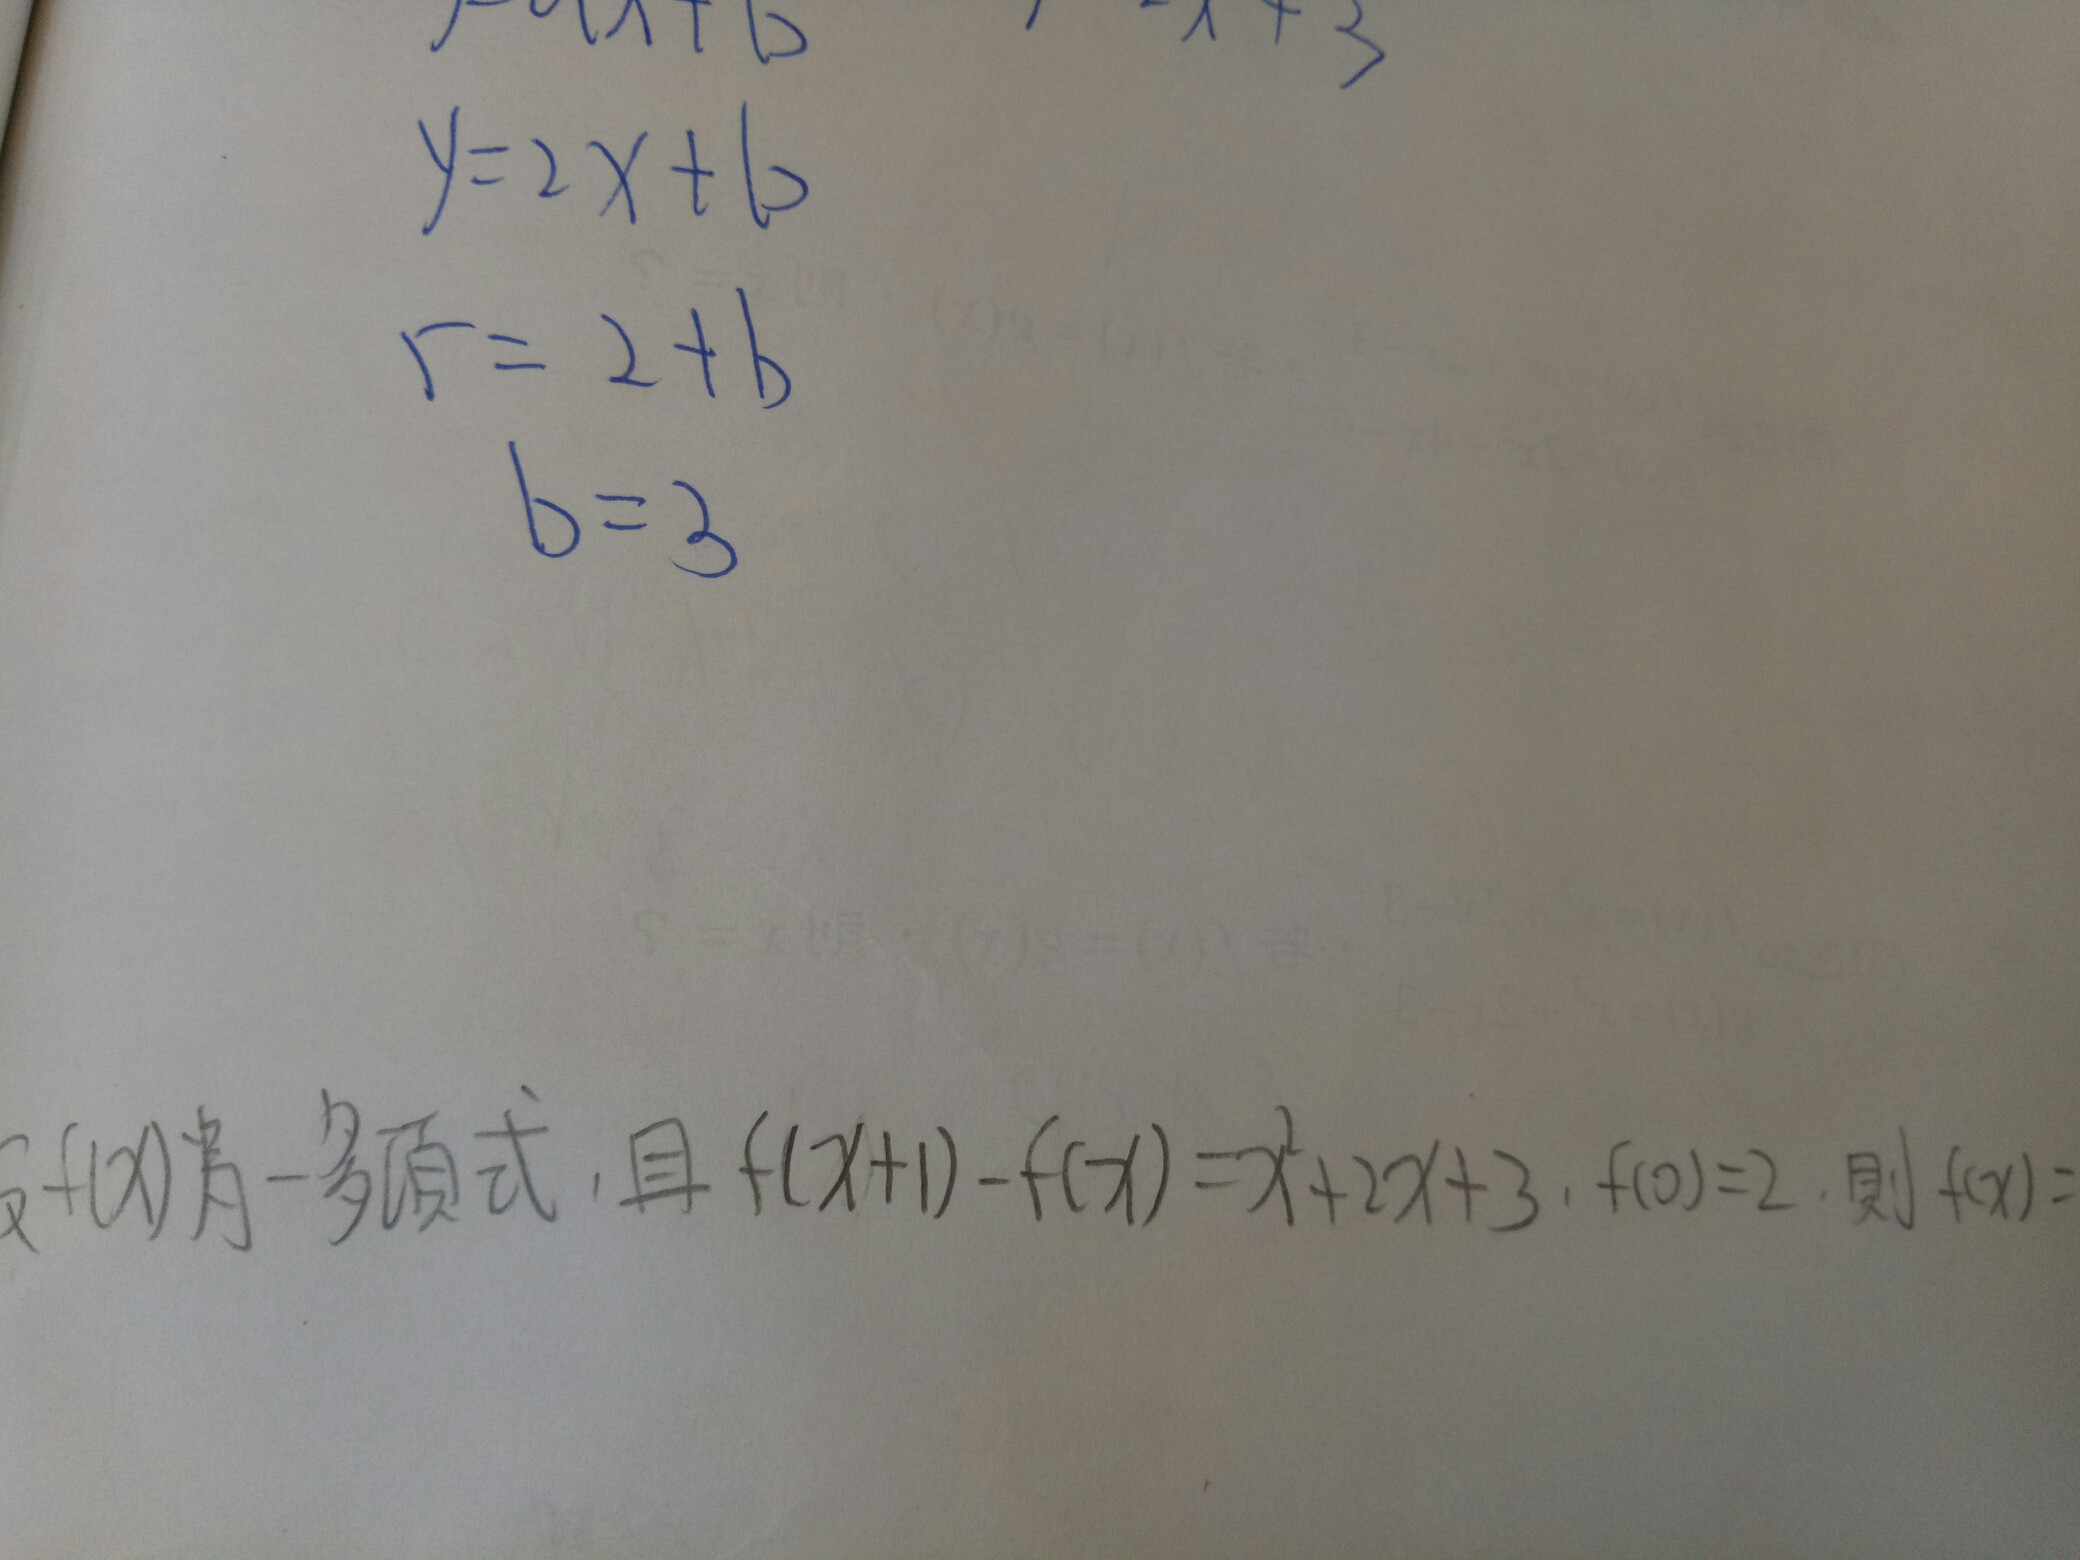 y=ax+b
x+3
y=2x+b
r=2+b
b=3
設f(x)為一多項式,且f(x+1)-f(x)=x²+2x+3,f(0)=2,則f(x)=